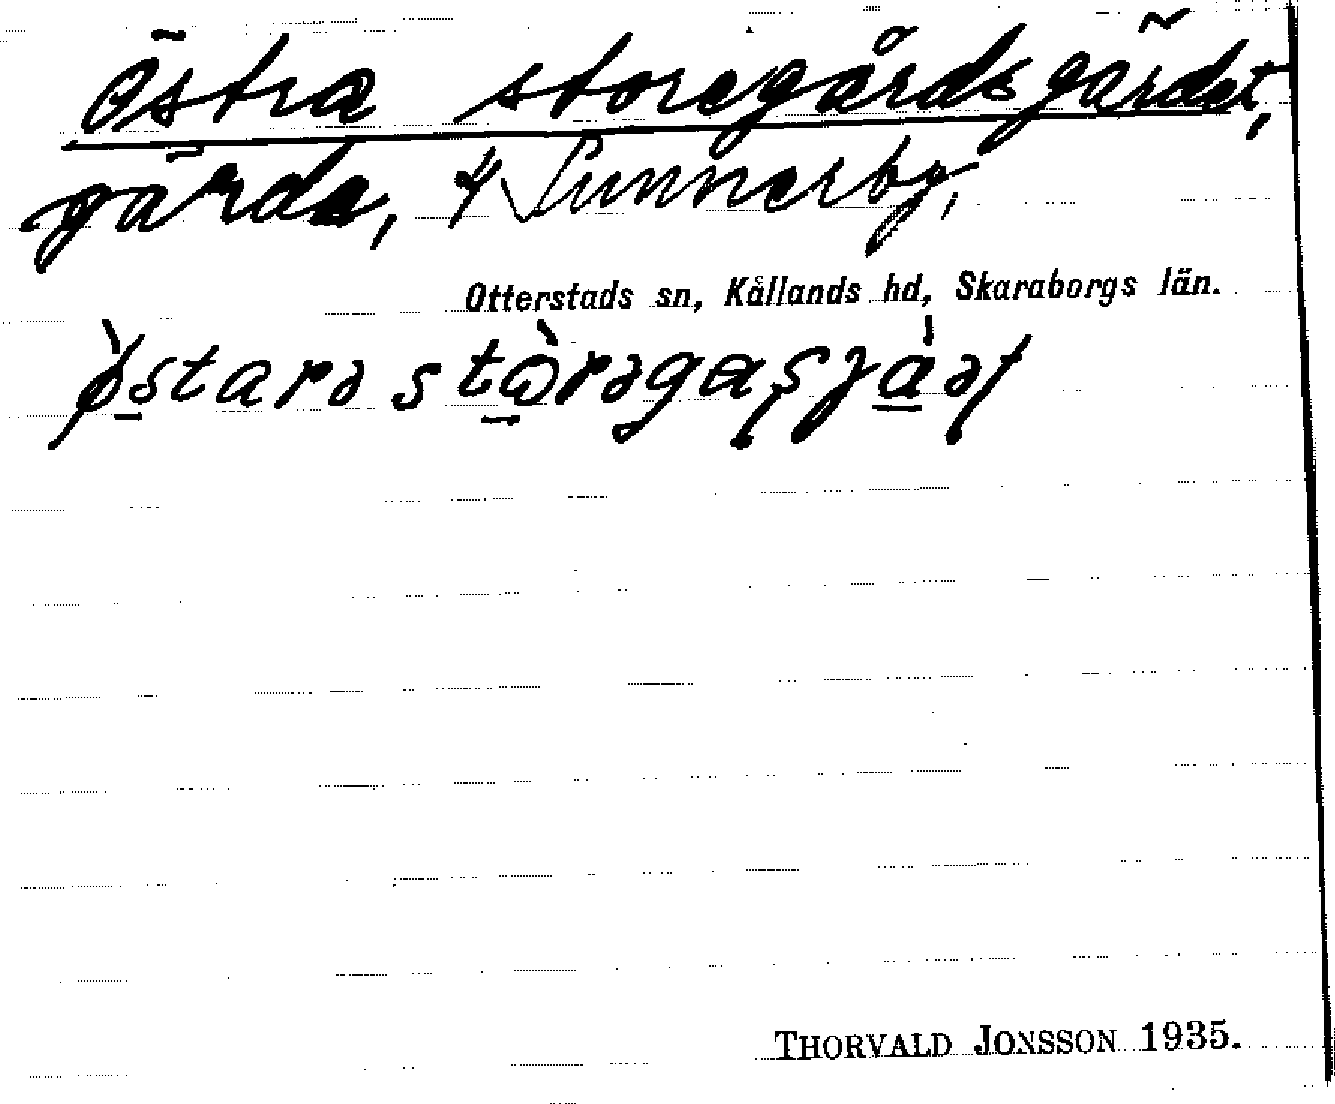 Östra storegårdsgärdet,
gärde, √ Sunnerby,
Otterstads sn, Kållands hd, Skaraborgs län.
THORVALD JONSSON 1935.